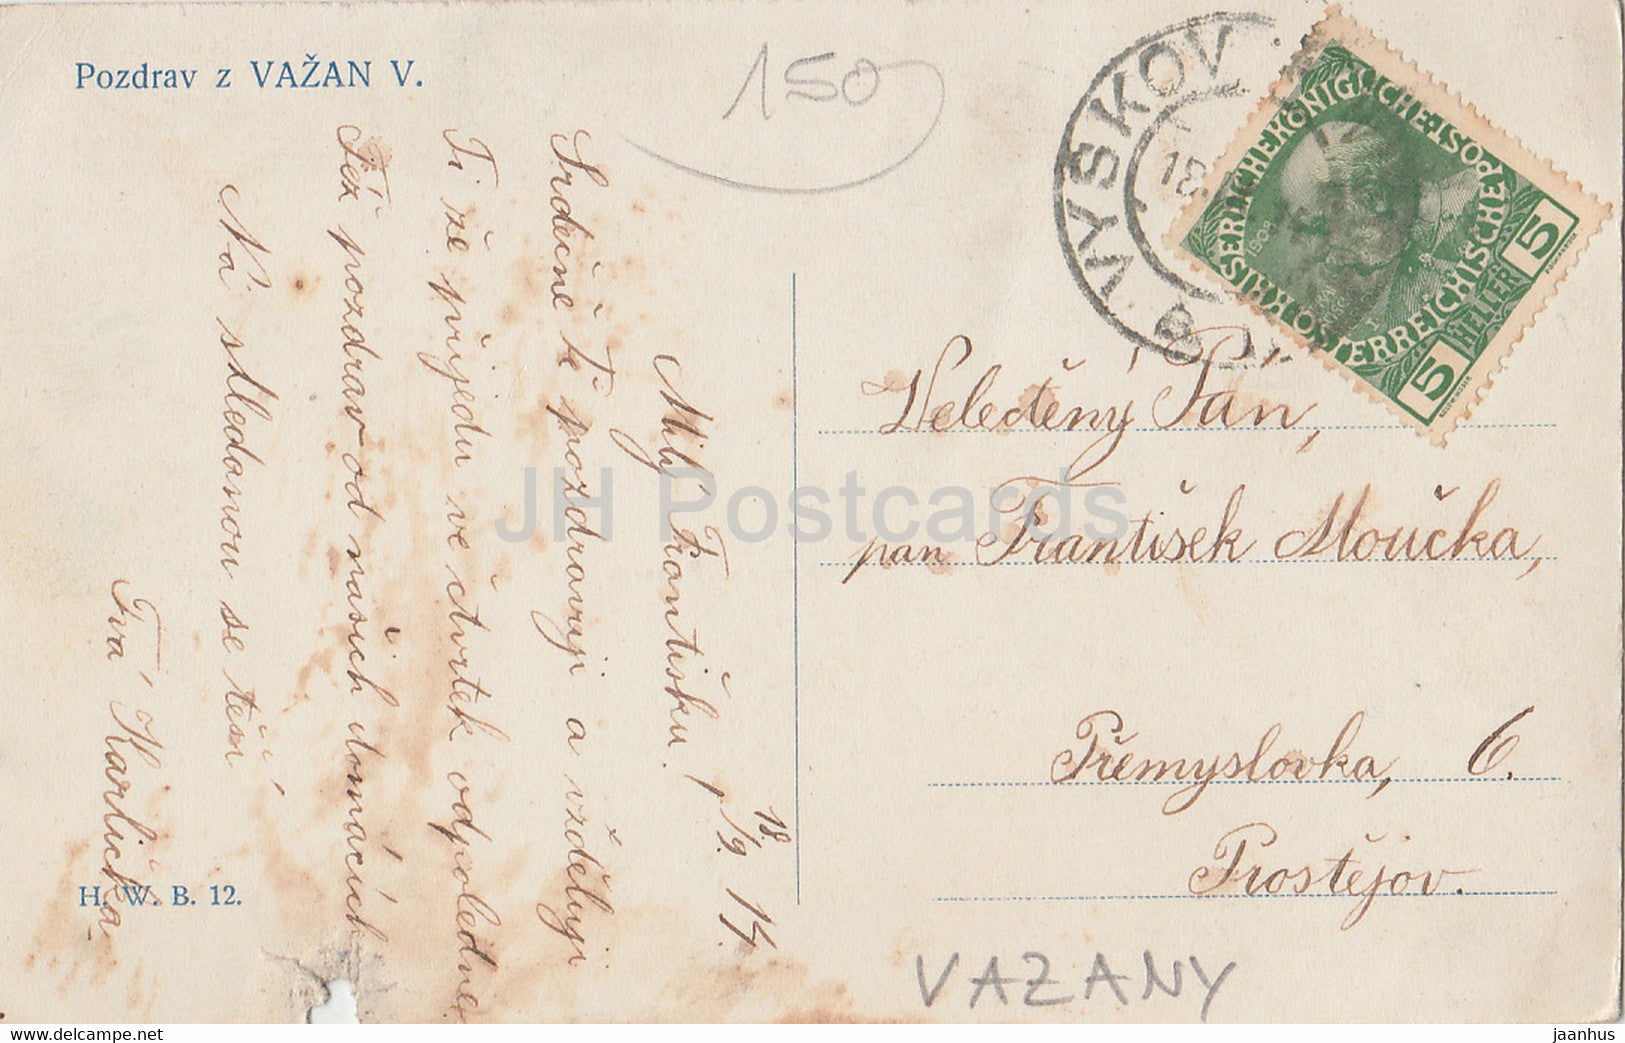 Pozdrav z VAŽAN V.
150
VYŠKOV
18
KAISERLICHE KÖNIGLICHE ÖSTERREICHISCHE POST
1908
5 HELLER 5
Milý Františku!
18./9. 14.
Srdečně tě pozdravuji a vzděluji
Ti že přijedu ve čtvrtek odpoledne
Též pozdrav od našich domácích
Na shledanou se těší
Tvá Karlička
H. W. B. 12.
Velectěný Pan,
pan František Moučka,
Přemyslovka, 6.
Prostějov.
VAZANY
JH Postcards
www.delcampe.net
jaanhus